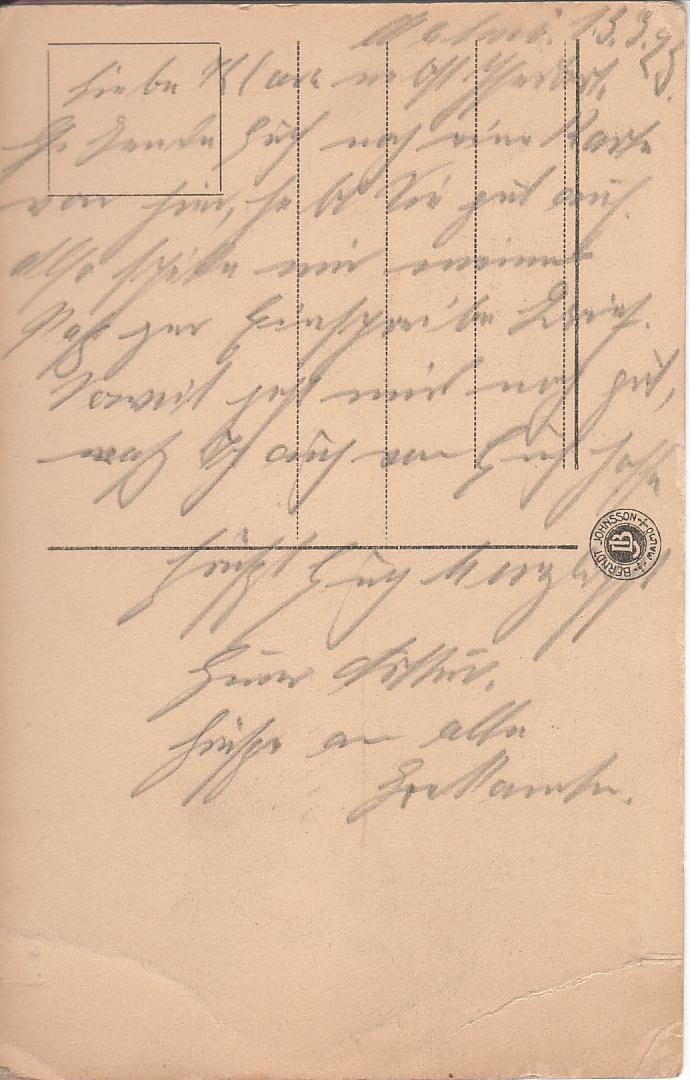 Malmö. 13.3.25.
Liebe Klara nebst
Sende Euch noch eine Karte
von hier, hebt Sie gut auf.
also mir meinen
Paß per Einschreibe Brief.
Soweit geht mir noch gut,
was Ich auch von Euch hoffe
Grüßt Euch herzlichst
Euer Arthur.
Grüße an alle
Bekannten.
BERNDT JOHNSSON MALMÖ
BJ